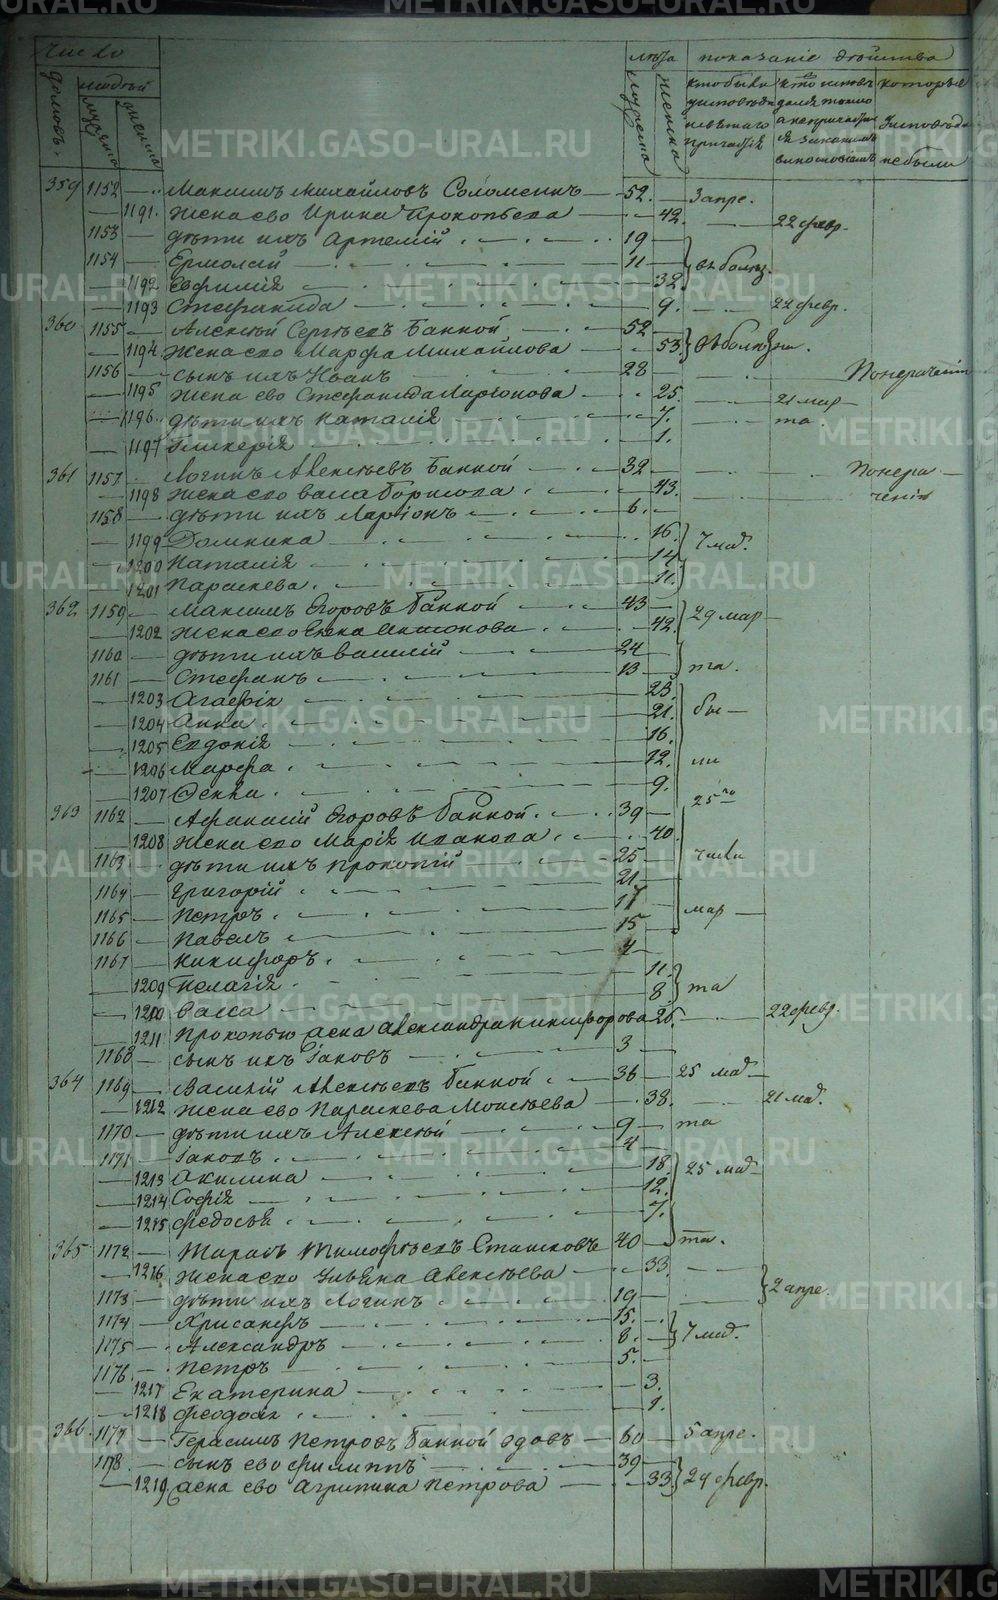 число
лѣта показаніе дѣйства
домовъ людей
мужеска женска
мужеска женска
которые
исповѣда
небыли
359 1152 Максимъ Михайловъ Соломеинъ 52. 3 апре.
1191. жена ево Ирина Прокопьева 42. 22 февр.
1153 дѣти ихъ Артемій 19
1154 Ермолай 11 въ болѣз.
1192 Евфимія 32
1193 Стефанида 9. 22 февр.
360 1155 Алексѣй Сергѣевъ Банной 52
1194 жена ево Марфа Михайлова 53. въ болѣзни.
1156 сынъ ихъ Иванъ 28 Понераченію
1195 жена ево Стефанида Ларіонова 25. 21 мар
1196 дѣти ихъ Наталія 7. та.
1197 Гликерія 1.
361 1157 Логинъ Алексѣевъ Банной 32 Понера
1198 жена ево Васа Борисова 43. ченію
1158 дѣти ихъ Ларіонъ 6.
1199 Домника 16.
1200 Наталія 14
1201 Параскева 11.
362 1159 Максимъ Егоровъ Банной 43 29 мар
1202 жена ево Елена Антонова 42.
1160 дѣти ихъ Василій 24
1161 Стефанъ 13 та.
1203 Агафія 23.
1204 Анна 21. бы
1205 Евдокія 16.
1206 Марфа 12. ли
1207 Ѳекла 9.
25го
363 1162 Афанасій Егоровъ Банной 39
1208 жена ево Марія Иванова 40.
1163 дѣти ихъ Прокопій 25 числа
1164 Григорій 21
1165 Петръ 17 мар
1166 Павелъ 15
1167 Никифоръ 4
1209 Пелагія 11.
1210 Васса 8 та
1211 Прокопью жена Александра Никифорова 26. 22 февр.
1168 сынъ ихъ Іаковъ 3
364 1169 Василій Алексѣевъ Банной 36 25 мар
1212 жена ево Параскева Моисѣева 38. 21 мар.
1170 дѣти ихъ Алексѣй 9 та
1171 Іаковъ 4
1213 Акилина 18. 25 мар
1214 Софія 12.
1215 Федосья 7. та.
365 1172 Тарасъ Тимофѣевъ Сташковъ 40
1216 жена ево Ульяна Алексѣева 33.
1173 дѣти ихъ Логинъ 19 2 апре.
1174 Хрисанфъ 15.
1175 Александръ 8. 7 мар.
1176. Петръ 5.
1217 Екатерина 3.
1218 Феодоra 1.
366. 1177 Герасимъ Петровъ Банной вдовъ 60 5 апре.
1178. сынъ ево Филиппъ 39
1219 жена ево Агрипина Петрова 33. 24 февр.
METRIKI.GASO-URAL.RU